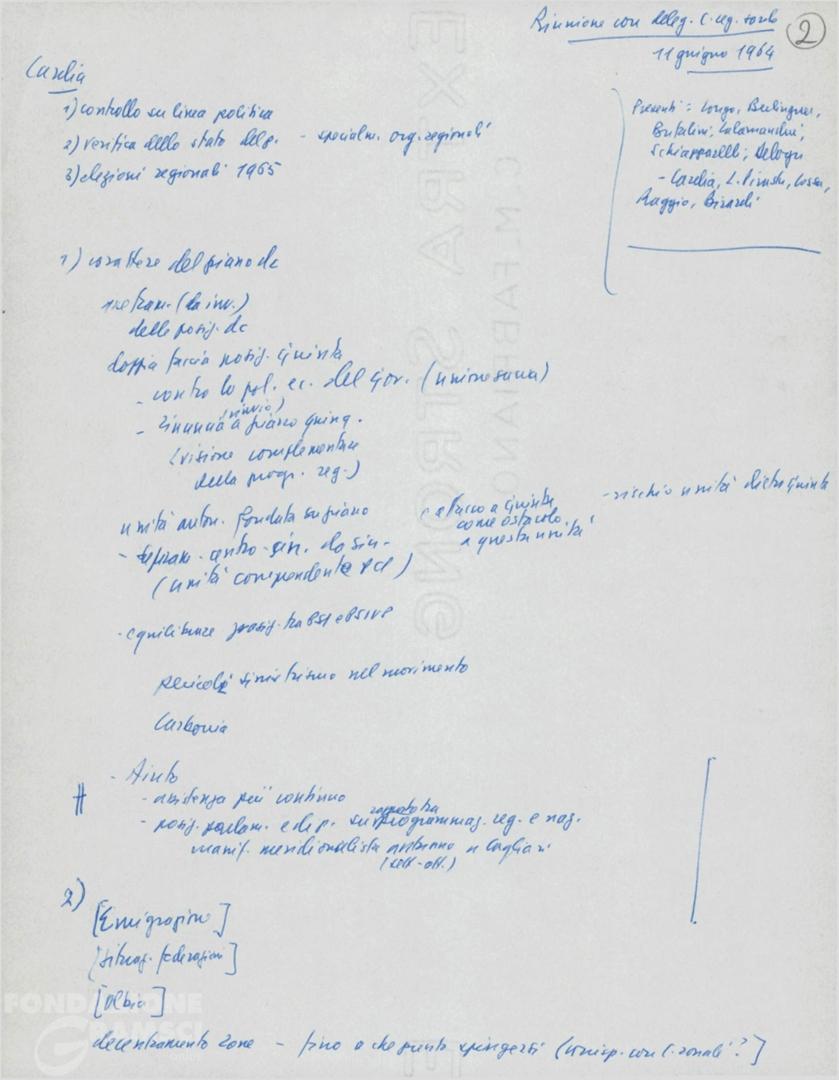 Riunione con deleg. C. reg. sardo
2
11 giugno 1964
Cardia
Presenti: Longo, Berlinguer,
Bufalini, Calamandrei,
Schiapparelli, Delogu
- Cardia, L. Pirastu,
Raggio, Birardi
1) controllo su linea politica
2) verifica dello stato del p. - specialm. org. regionali
3) elezioni regionali 1965
1) carattere del piano dc
delle posiz. dc
doppia faccia posiz. giunta
- contro la pol. ec. del gov. (unione sarda)
(rinvio)
- rinuncia a piano quinq.
(visione complementare
della progr. reg.)
unità auton. fondata su piano
attacco a giunta
come ostacolo
a questa unità
- rischio unità dietro giunta
- separaz. centro-sin. da sin.
(unità comprendente PCI)
- equilibrare posiz. tra PSI e PSIUP
pericoli sinistrismo nel movimento
Carbonia
- Aiuto
- assistenza più continua
rapporto tra
- posiz. parlam. e del p. su programmaz. reg. e naz.
manif. meridionalista autunno a Cagliari
(sett-ott.)
2)
[Emigrazione]
[situaz. federazioni]
[Olbia]
decentramento zone - fino a che punto spingersi (corrisp. con C. zonali?]
EXTRA STRONG
C.M. FABRIANO
FONDAZIONE
GRAMSCI